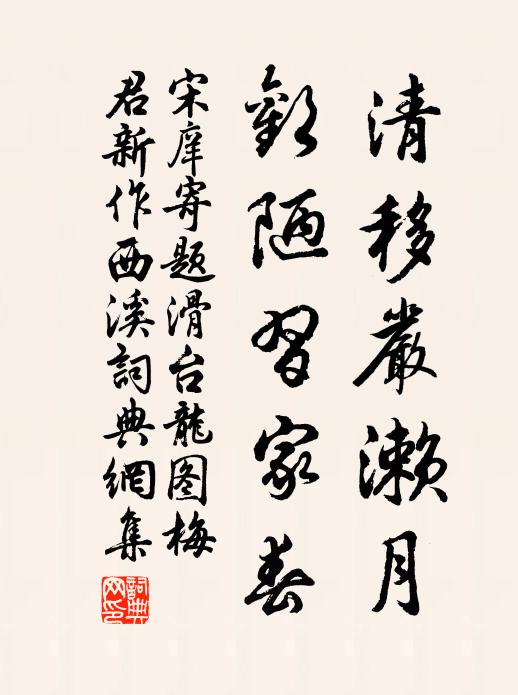 清移嚴濑月
歡陋習家春
宋庠寄題滑台龍图梅
君新作西溪詞典網集
詞典网印